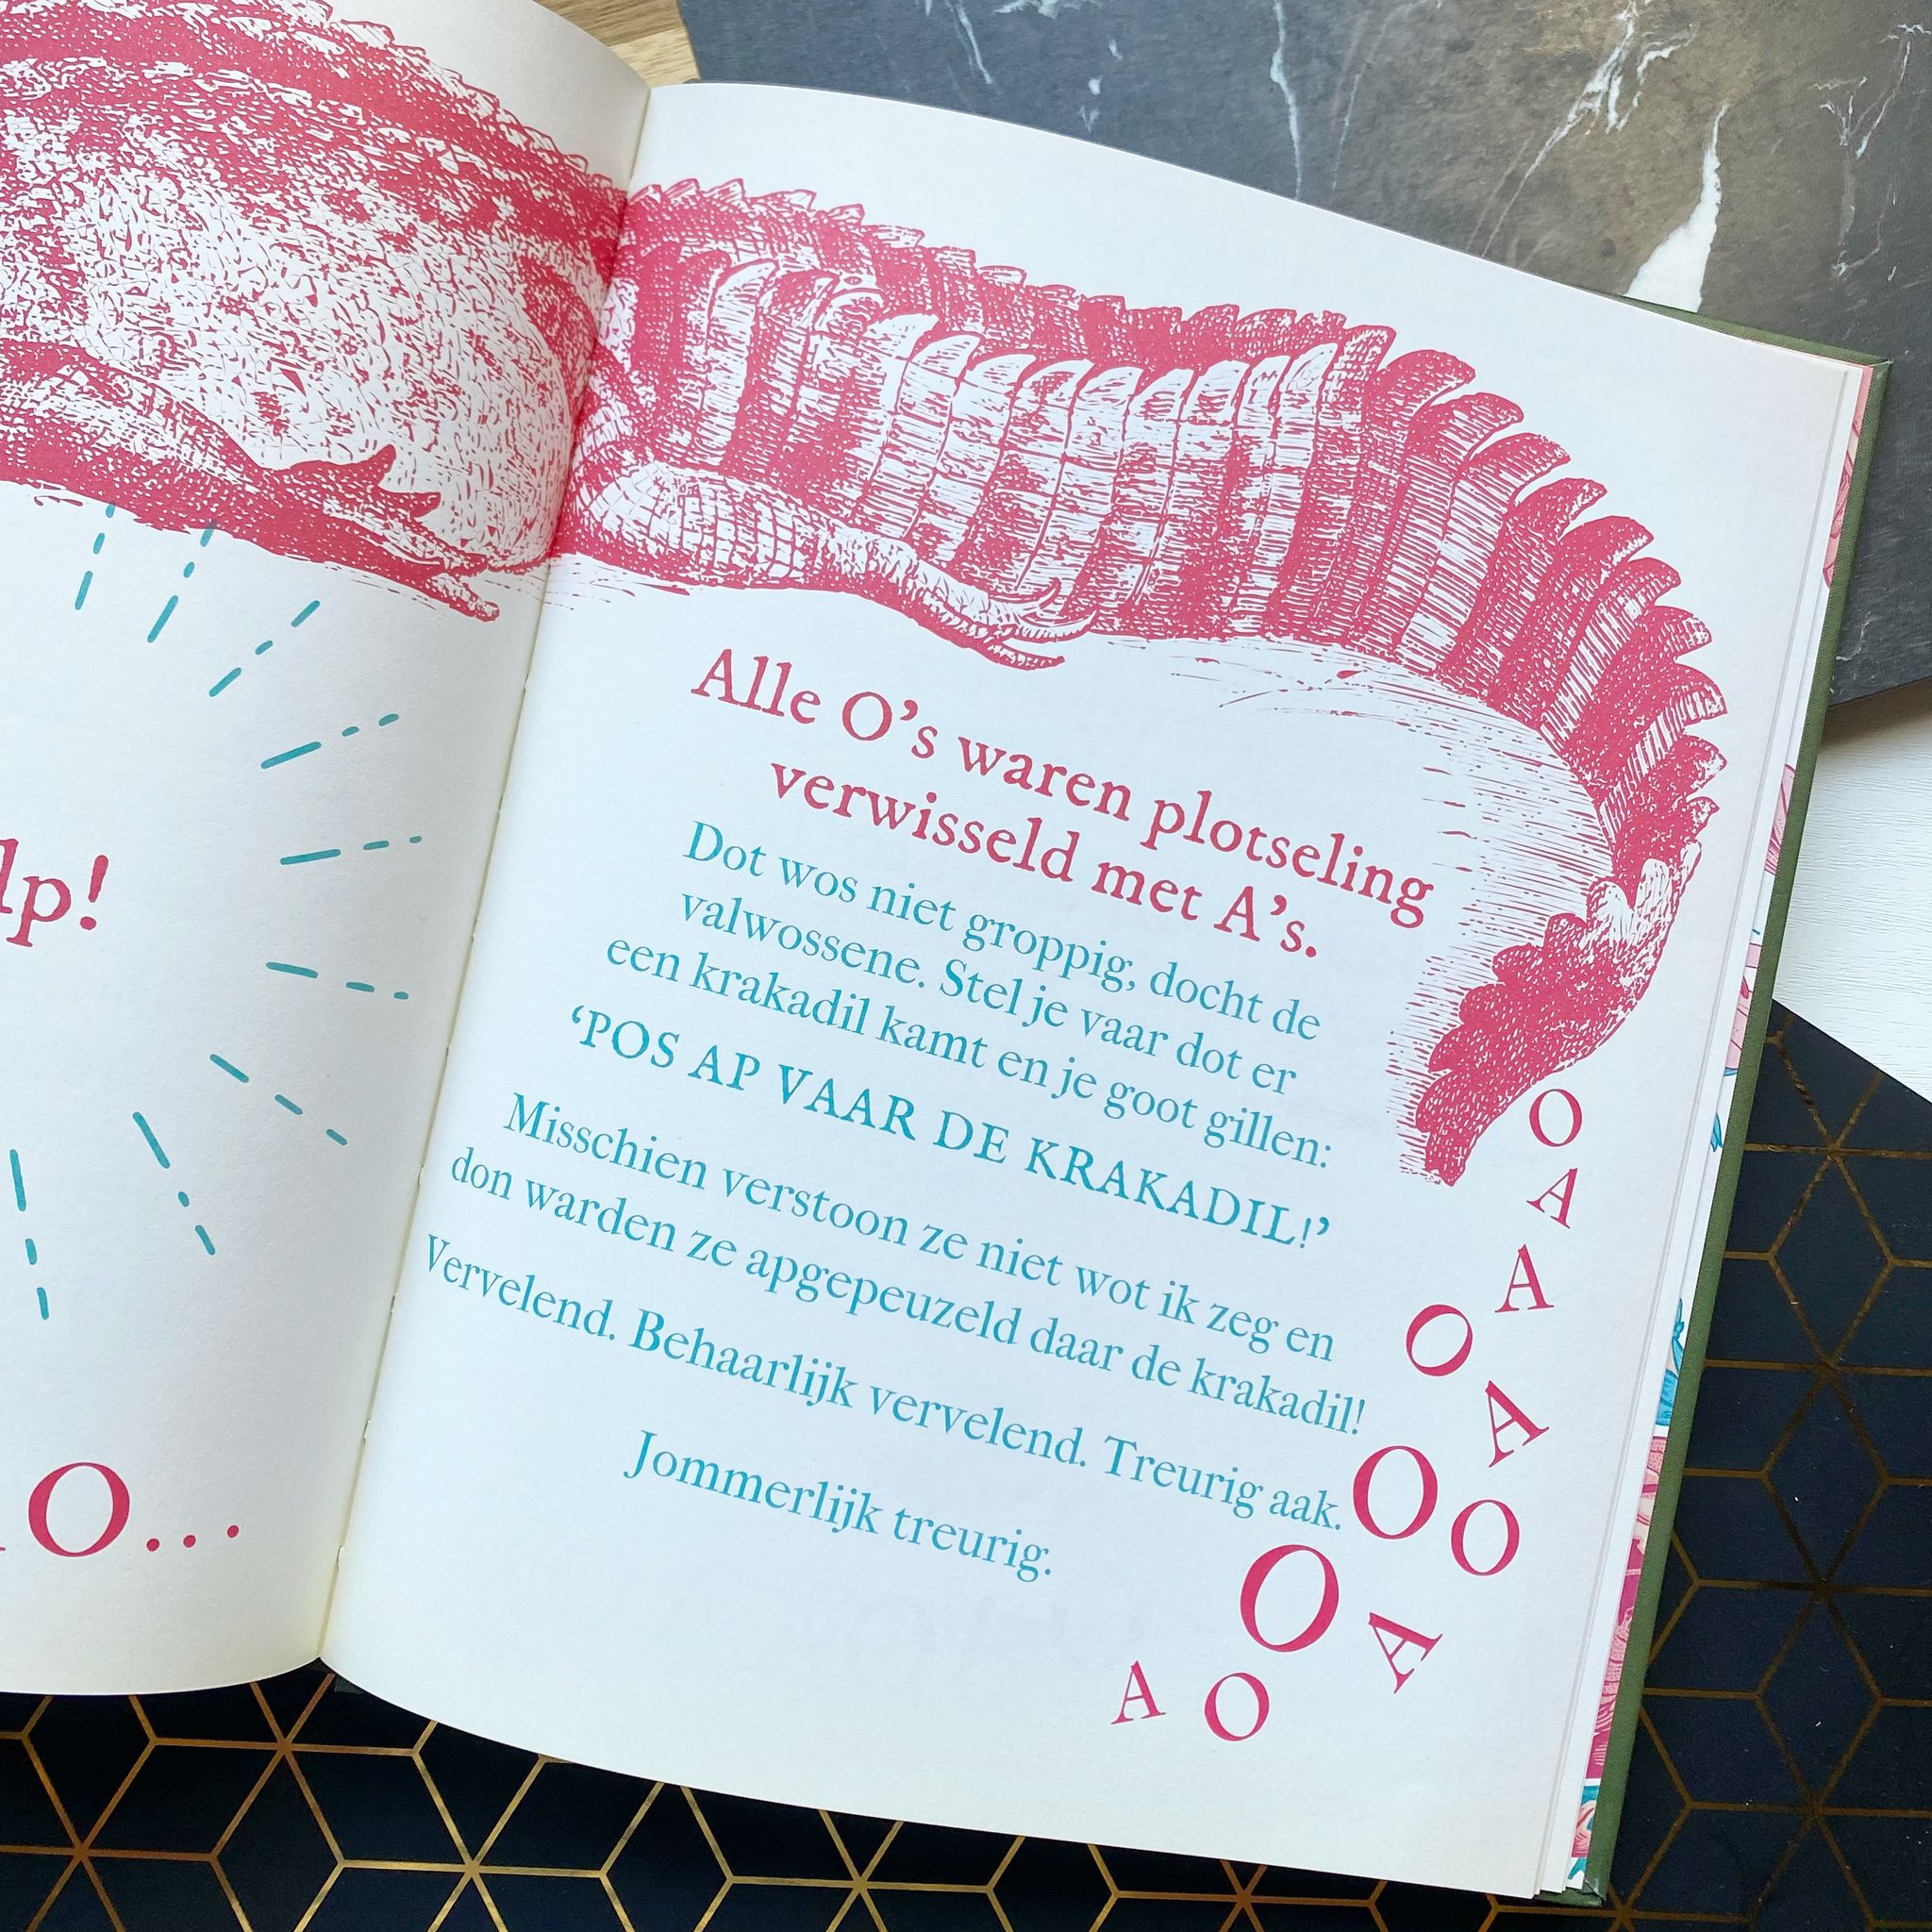 lp!
O...
Alle O's waren plotseling
verwisseld met A's.
Dot wos niet groppig, docht de
valwossene. Stel je vaar dot er
een krakadil kamt en je goot gillen:
‘POS AP VAAR DE KRAKADIL!’
Misschien verstoon ze niet wot ik zeg en
don warden ze apgepeuzeld daar de krakadil!
Vervelend. Behaarlijk vervelend. Treurig aak.
Jommerlijk treurig.
O
A
A
O
A
O
O
O
A
A
O